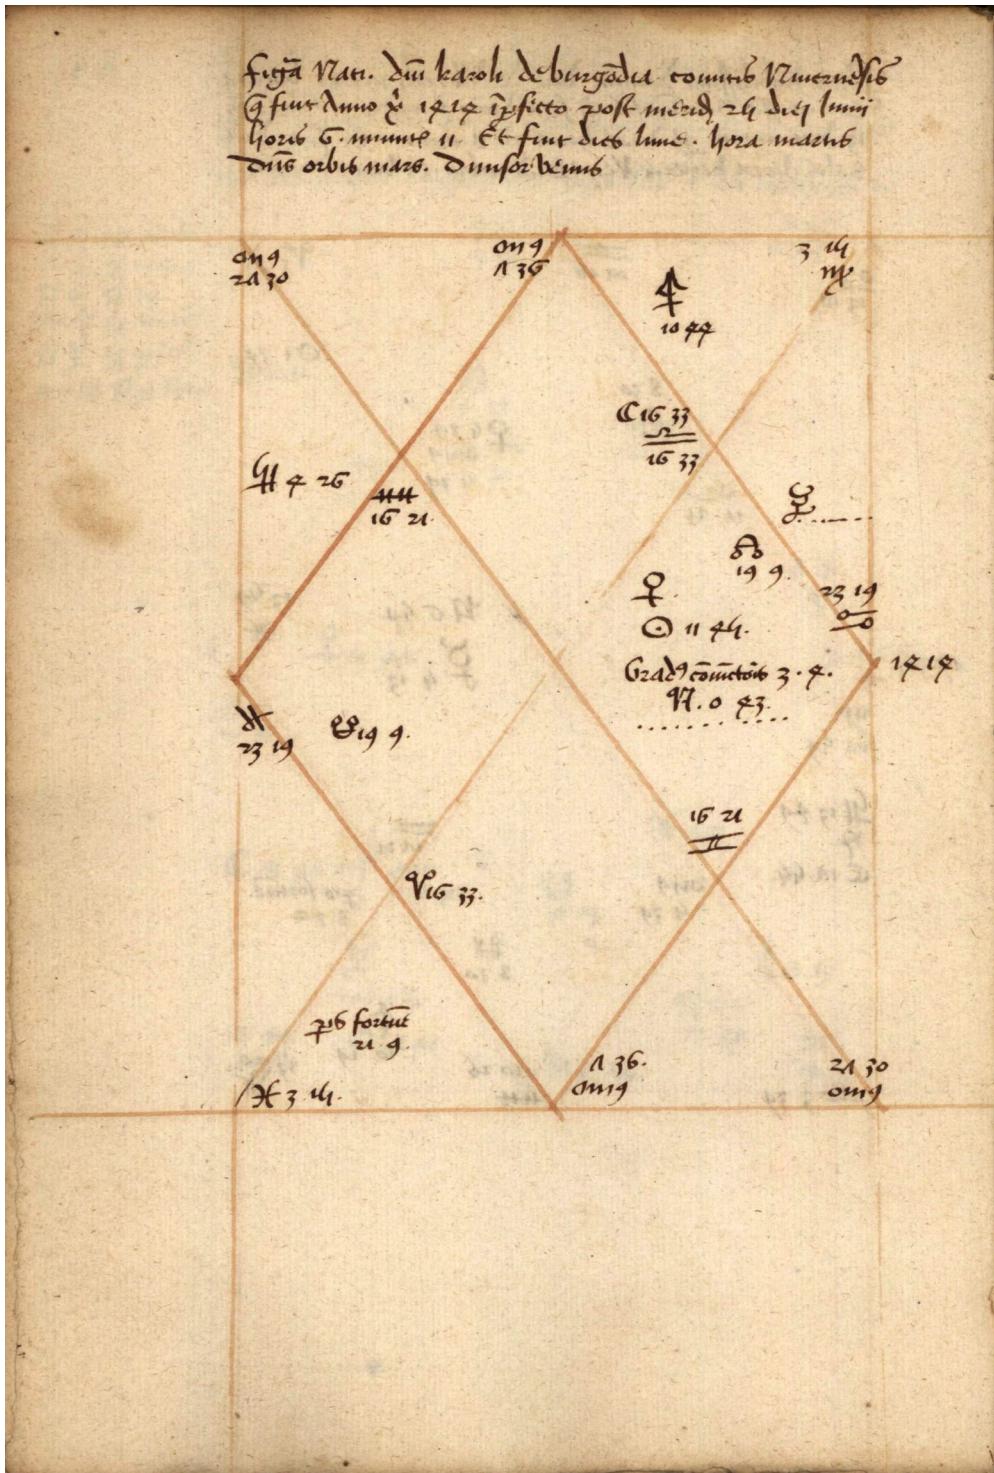 figã Nati. dñi karoli de burgõdia comitis Niuernẽsis
q̃ fuit Anno xᵢ 1414 īpfecto post merid 25 diej Iunij
horis 6. minut 11 Et fuit dies lune. hora martis
dñs orbis mars. Diuisor venus
2A 30
A 36
3 15
♍
10 44
☾ 16 33
♎
16 33
4 26
16 21
☿
☊
19 9.
♀
23 19
☉ 11 45.
Grad9 cõiũctõis 3. 4.
0 43.
1414
23 19
☋ 19 9.
16 21
♈ 16 33.
ps fortũe
21 9.
♓ 3 15.
A 36.
2A 30